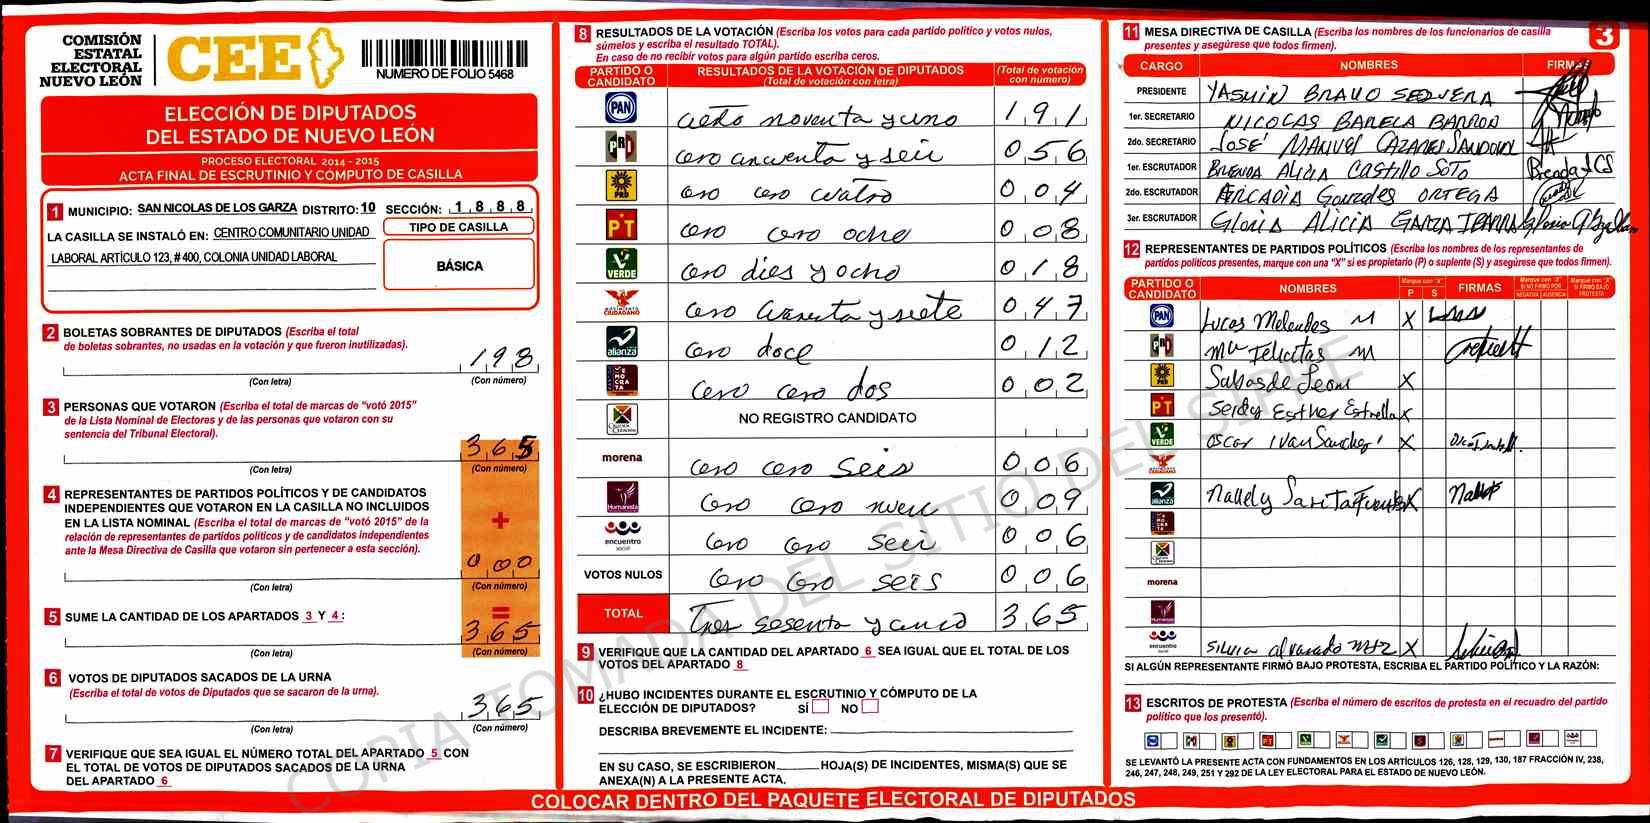 COMISIÓN
ESTATAL
ELECTORAL
NUEVO LEÓN
CEE
NUMERO DE FOLIO 5468
ELECCIÓN DE DIPUTADOS
DEL ESTADO DE NUEVO LEÓN
PROCESO ELECTORAL 2014 - 2015
ACTA FINAL DE ESCRUTINIO Y CÓMPUTO DE CASILLA
1 MUNICIPIO: SAN NICOLAS DE LOS GARZA DISTRITO: 10 SECCIÓN: 1 8 8 8
LA CASILLA SE INSTALÓ EN: CENTRO COMUNITARIO UNIDAD
LABORAL ARTÍCULO 123, # 400, COLONIA UNIDAD LABORAL
TIPO DE CASILLA
BÁSICA
2 BOLETAS SOBRANTES DE DIPUTADOS (Escriba el total
de boletas sobrantes, no usadas en la votación y que fueron inutilizadas).
198
(Con letra) (Con número)
3 PERSONAS QUE VOTARON (Escriba el total de marcas de "votó 2015"
de la Lista Nominal de Electores y de las personas que votaron con su
sentencia del Tribunal Electoral).
365
(Con letra) (Con número)
4 REPRESENTANTES DE PARTIDOS POLÍTICOS Y DE CANDIDATOS
INDEPENDIENTES QUE VOTARON EN LA CASILLA NO INCLUIDOS
EN LA LISTA NOMINAL (Escriba el total de marcas de "votó 2015" de la
relación de representantes de partidos políticos y de candidatos independientes
ante la Mesa Directiva de Casilla que votaron sin pertenecer a esta sección).
+
000
(Con letra) (Con número)
5 SUME LA CANTIDAD DE LOS APARTADOS 3 Y 4:
=
365
(Con letra) (Con número)
6 VOTOS DE DIPUTADOS SACADOS DE LA URNA
(Escriba el total de votos de Diputados que se sacaron de la urna).
365
(Con letra) (Con número)
7 VERIFIQUE QUE SEA IGUAL EL NÚMERO TOTAL DEL APARTADO 5 CON
EL TOTAL DE VOTOS DE DIPUTADOS SACADOS DE LA URNA
DEL APARTADO 6
8 RESULTADOS DE LA VOTACIÓN (Escriba los votos para cada partido político y votos nulos,
súmelos y escriba el resultado TOTAL).
En caso de no recibir votos para algún partido escriba ceros.
PARTIDO O CANDIDATO RESULTADOS DE LA VOTACIÓN DE DIPUTADOS (Total de votación con letra) (Total de votación con número)
PAN ciento noventa y uno 191
PRI cero cincuenta y seis 056
PRD cero cero cuatro 004
PT cero cero ocho 008
VERDE cero dies y ocho 018
MOVIMIENTO CIUDADANO cero cuarenta y siete 047
alianza cero doce 012
DEMOCRATA cero cero dos 002
CRUZADA CIUDADANA NO REGISTRO CANDIDATO
morena cero cero seis 006
Humanista cero cero nueve 009
encuentro social cero cero seis 006
VOTOS NULOS cero cero seis 006
TOTAL Tres sesenta y cinco 365
9 VERIFIQUE QUE LA CANTIDAD DEL APARTADO 6 SEA IGUAL QUE EL TOTAL DE LOS
VOTOS DEL APARTADO 8
10 ¿HUBO INCIDENTES DURANTE EL ESCRUTINIO Y CÓMPUTO DE LA
ELECCIÓN DE DIPUTADOS? SÍ NO
DESCRIBA BREVEMENTE EL INCIDENTE:
EN SU CASO, SE ESCRIBIERON HOJA(S) DE INCIDENTES, MISMA(S) QUE SE
ANEXA(N) A LA PRESENTE ACTA.
11 MESA DIRECTIVA DE CASILLA (Escriba los nombres de los funcionarios de casilla
presentes y asegúrese que todos firmen).
3
CARGO NOMBRES FIRMAS
PRESIDENTE YASMIN BRAVO SEQUERA
1er. SECRETARIO NICOLAS BARELA BARRON
2do. SECRETARIO JOSÉ MANUEL CAZARES SANDOVAL
1er. ESCRUTADOR BRENDA ALICIA CASTILLO SOTO Brenda A CS
2do. ESCRUTADOR ARCADIA Gonzales ORTEGA
3er. ESCRUTADOR GLORIA ALICIA GARZA IBARRA
12 REPRESENTANTES DE PARTIDOS POLÍTICOS (Escriba los nombres de los representantes de
partidos políticos presentes, marque con una "X" si es propietario (P) o suplente (S) y asegúrese que todos firmen).
PARTIDO O CANDIDATO NOMBRES Marque con "X" P S FIRMAS Marque con "X" SI NO FIRMÓ POR NEGATIVA AUSENCIA Marque con "X" SI FIRMÓ BAJO PROTESTA
PAN Lucas Melendes M X
PRI Ma Felicitas M
PRD Salas de Leon X
PT Seidy Esther Estrella X
VERDE Oscar Ivan Sanchez X
MOVIMIENTO CIUDADANO
alianza Nallely Sarita Fuentes X
DEMOCRATA
morena
Humanista
encuentro social Silvia alvarado mtz X
SI ALGÚN REPRESENTANTE FIRMÓ BAJO PROTESTA, ESCRIBA EL PARTIDO POLÍTICO Y LA RAZÓN:
13 ESCRITOS DE PROTESTA (Escriba el número de escritos de protesta en el recuadro del partido
político que los presentó).
SE LEVANTÓ LA PRESENTE ACTA CON FUNDAMENTOS EN LOS ARTÍCULOS 126, 128, 129, 130, 187 FRACCIÓN IV, 238,
246, 247, 248, 249, 251 Y 292 DE LA LEY ELECTORAL PARA EL ESTADO DE NUEVO LEÓN.
COLOCAR DENTRO DEL PAQUETE ELECTORAL DE DIPUTADOS
COPIA TOMADA DEL SITIO DEL SIPRE